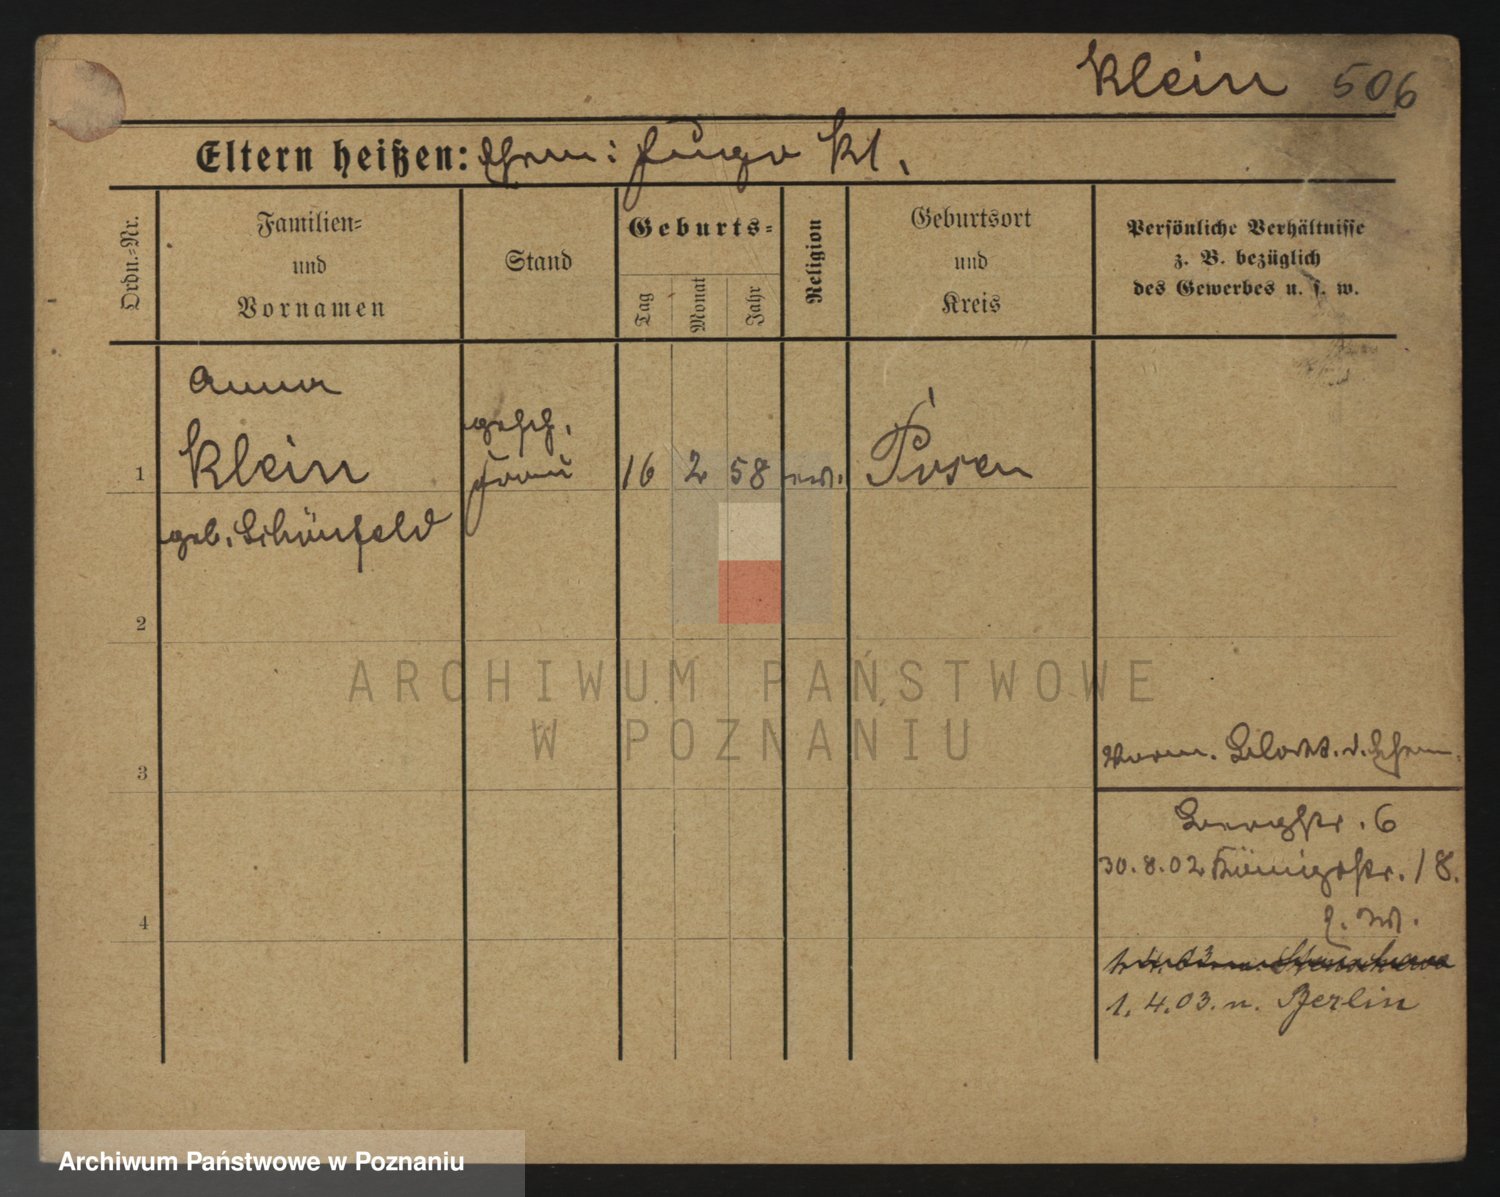 Klein 506
Eltern heißen: Ehem: Hugo Kl.
Ordn.-Nr.
Familien-
und
Vornamen
Stand
Geburts-
Tag
Monat
Jahr
Religion
Geburtsort
und
Kreis
Persönliche Verhältnisse
z. B. bezüglich
des Gewerbes u. s. w.
Anna
gesch.
1 Klein Frau 16 2 58 ev. Posen
geb. Schönfeld
2
3
Vorm. d. Ehem.
Bergstr. 6
30.8.02 Königsstr. 18.
4
1.4.03. n. Berlin
ARCHIWUM PAŃSTWOWE
W POZNANIU
Archiwum Państwowe w Poznaniu